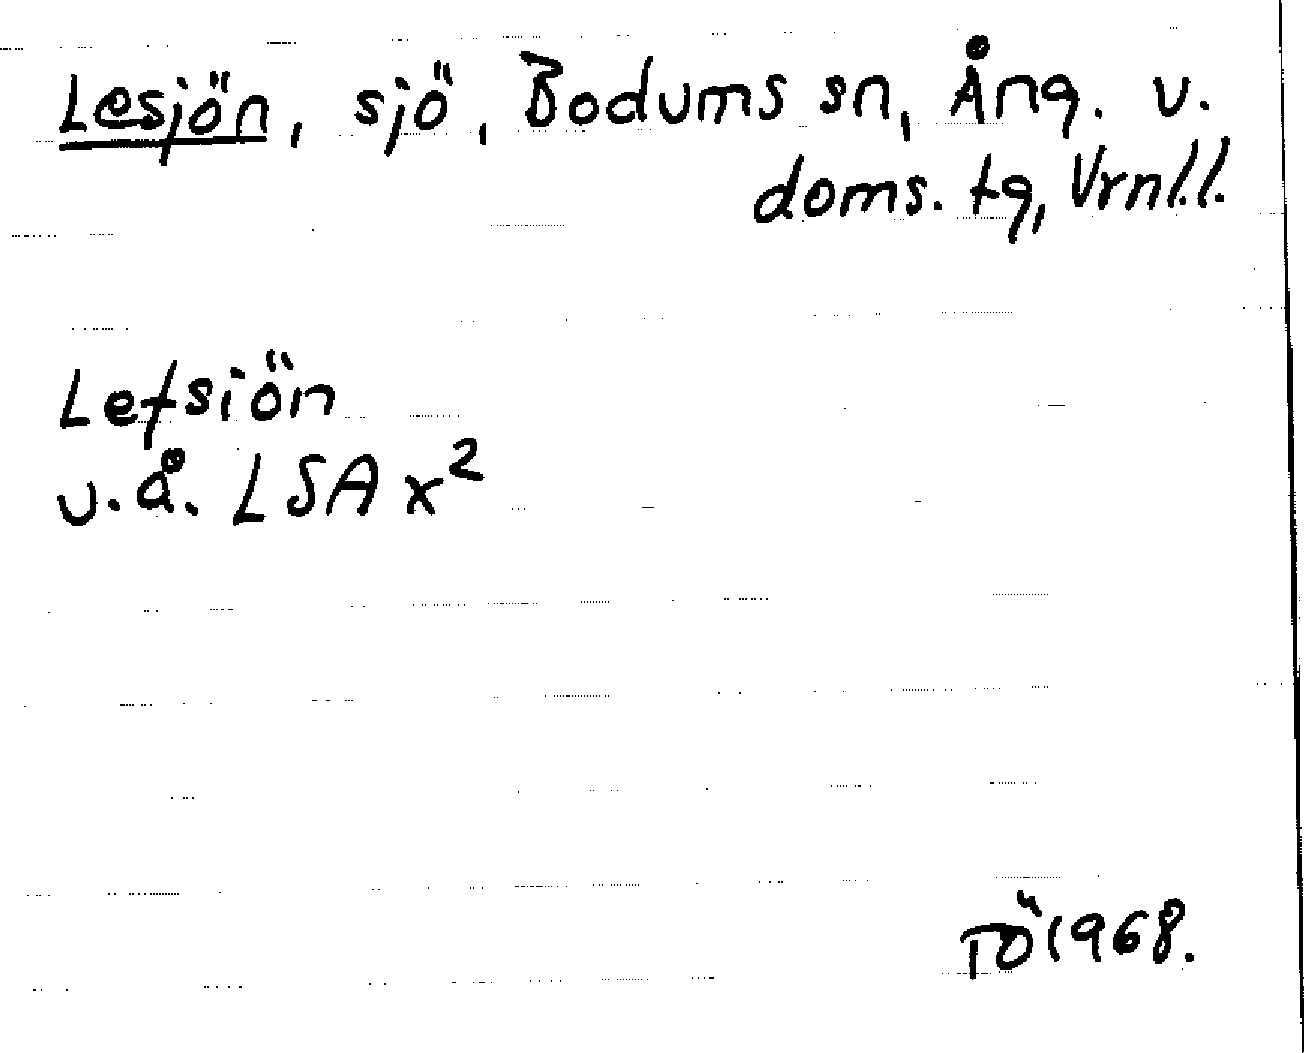 Lesjön, sjö, Bodums sn, Ång. v.
doms. tg, Vrnl.l.
Lefsiön
u.å. LSA x²
TÖ 1968.